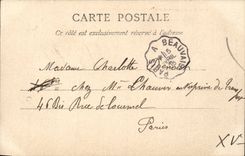 CARTE POSTALE
Ce côté est exclusivement réservé à l'adresse
A BEAUVAIS
Madame Charlotte
chez Mr Chauvin entreprise de
46 bis Rue de Lourmel
Paris
XV